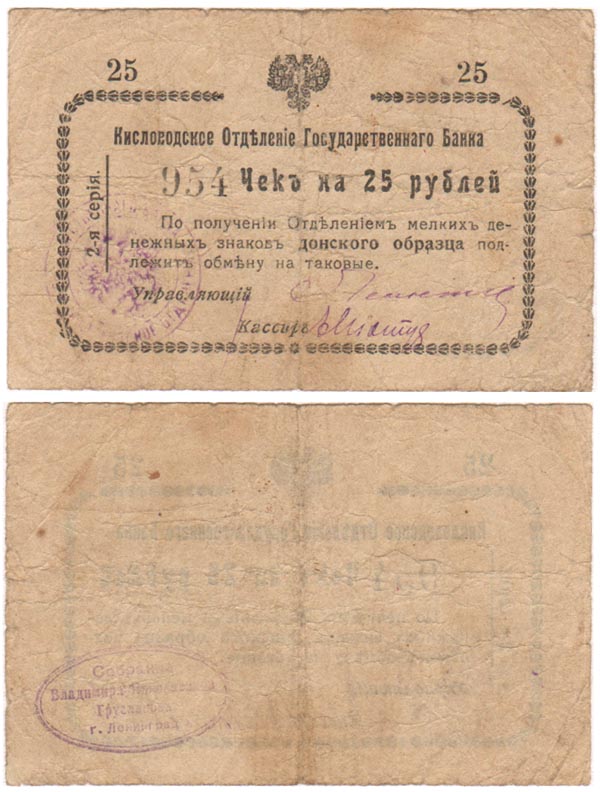 25
25
Кисловодское Отдѣленіе Государственнаго Банка
2-я серія.
954 Чекъ на 25 рублей
По полученіи Отдѣленіемъ мелкихъ де-
нежныхъ знаковъ донского образца под-
лежитъ обмѣну на таковые.
Управляющій
Кассиръ
Собрание
Владимира
Грусланова
г. Ленинград